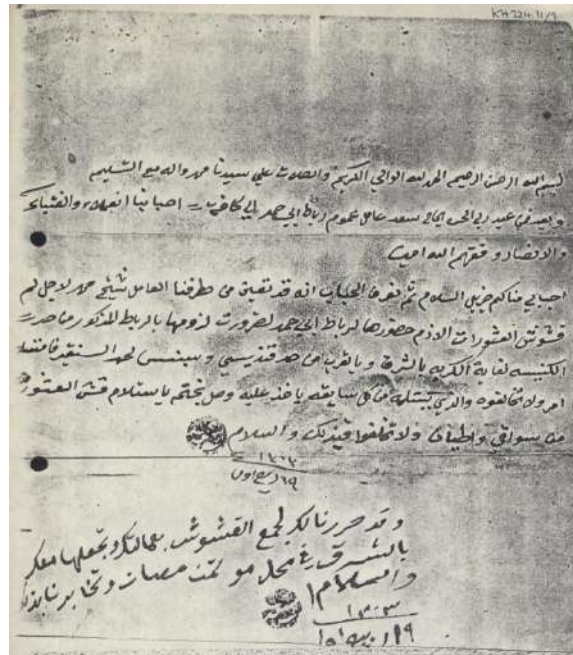 KH 224.11/9
بسم الله الرحمن الرحيم الحمد لله الوالي الكريم والصلاة علي سيدنا محمد واله مع التسليم
وبعد فمن عبد ربه الحسن سعد عامل عموم رباط ابي حمد الي كافة احبابنا العمد والمشايخ
والانصار وفقهم الله امين
احبابي منا لكم جزيل السلام ثم نعرف الاحباب انه قد تعين من طرفنا العامل شيخ محمد لاجل لم
قشوش العشورات اللازم حضورها لرباط ابي حمد لضرورت لزومها بالرباط المذكور من حد
الكنيسه لغاية الكربه بالشرق وبالغرب من حد قنديسي
امر ولا تخالفوه والذي من كل ساقيه ياخذ عليه وصل بختم باستلام قش العشور
من سواقي واطيان ولا تخالفوا في ذلك والسلام
١٣٠٣
١٩ ربيع اول
وقد حررنا لكم لجمع القشوش وتجعلها معكم
بالشرق في محل وتخابرنا بذلك
والسلام
١٣٠٣
١٩ ر